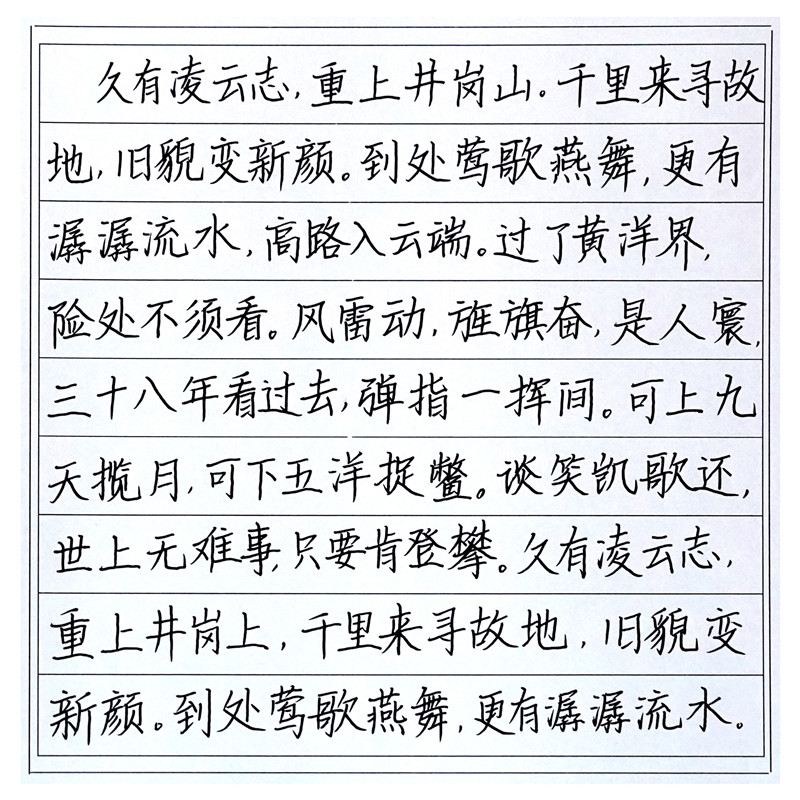 久有凌云志，重上井岗山。千里来寻故
地，旧貌变新颜。到处莺歌燕舞，更有
潺潺流水，高路入云端。过了黄洋界，
险处不须看。风雷动，旌旗奋，是人寰，
三十八年看过去，弹指一挥间。可上九
天揽月，可下五洋捉鳖。谈笑凯歌还，
世上无难事，只要肯登攀。久有凌云志，
重上井岗上，千里来寻故地，旧貌变
新颜。到处莺歌燕舞，更有潺潺流水。